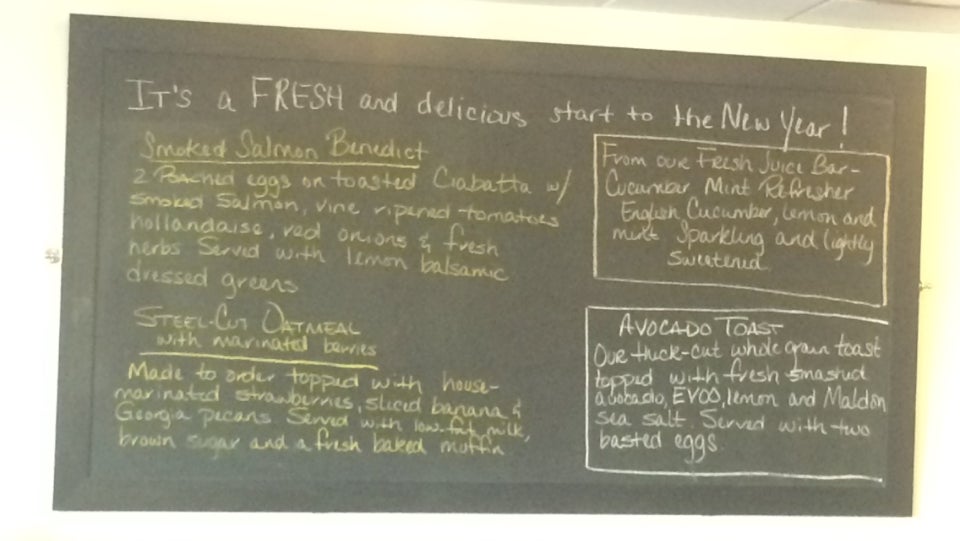 IT'S a FRESH and delicious start to the New Year!
Smoked Salmon Benedict
2 Poached eggs on toasted Ciabatta w/
smoked Salmon, vine ripened tomatoes
hollandaise, red onions & fresh
herbs Served with lemon balsamic
dressed greens
STEEL-CUT OATMEAL
with marinated berries
Made to order topped with house-
marinated strawberries, sliced banana &
Georgia pecans. Served with low-fat milk,
brown sugar and a fresh baked muffin
From our Fresh Juice Bar-
Cucumber Mint Refresher
English Cucumber, lemon and
mint Sparkling and lightly
sweetened.
AVOCADO TOAST
Our thick-cut whole grain toast
topped with fresh smashed
avocado, EVOO, lemon and Maldon
sea salt. Served with two
basted eggs.